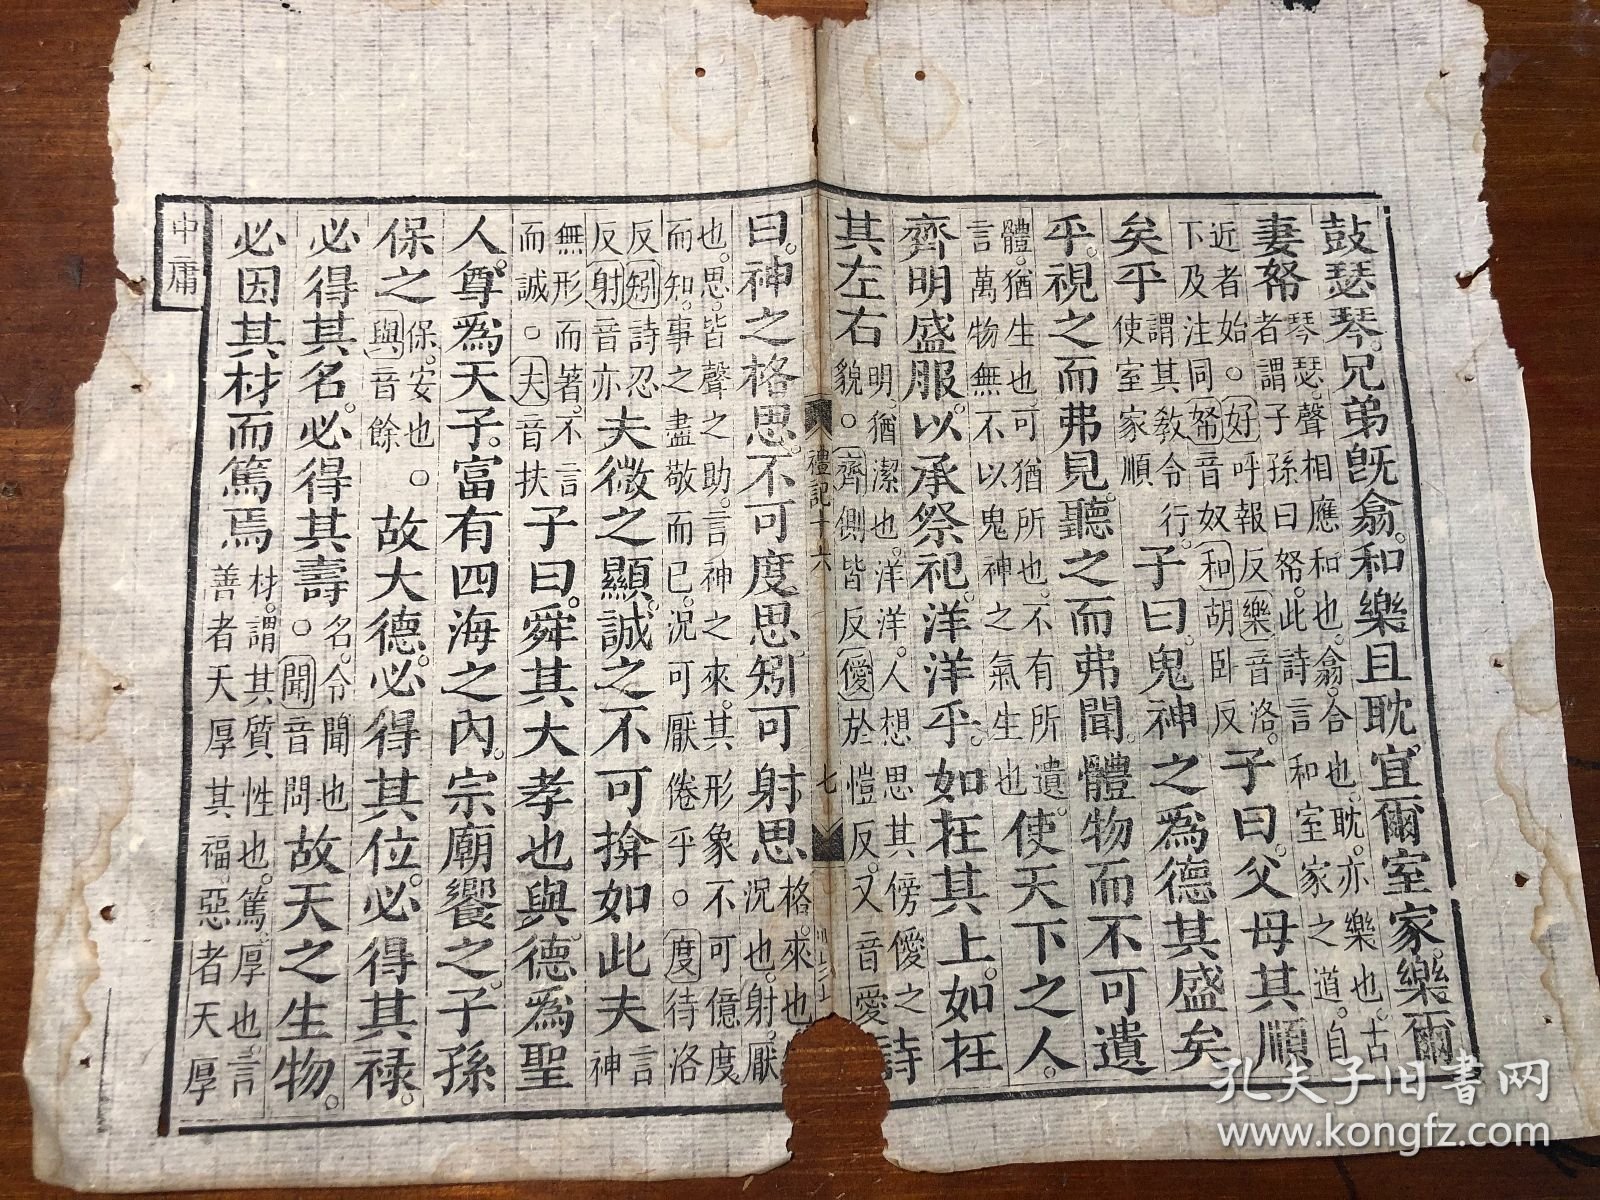 鼓瑟琴。兄弟旣翕。和樂且耽。宜爾室家。樂爾
妻帑琴瑟。聲相應和也。翕。合也。耽。亦樂也。古者謂子孫曰帑。此詩言和室家之道。自
近者始。○好呼報反樂音洛。下及注同帑音奴和胡卧反子曰。父母其順
矣乎謂其敎令行。使室家順子曰。鬼神之爲德其盛矣
乎。視之而弗見。聽之而弗聞。體物而不可遺
體。猶生也。可猶所也。不有所遺。言萬物無不以鬼神之氣生也使天下之人。
齊明盛服。以承祭祀。洋洋乎。如在其上。如在
其左右明。猶潔也。洋洋。人想思其傍僾之貌。○齊側皆反僾於愷反。又音愛詩
禮記十六
七
曰。神之格思。不可度思。矧可射思格。來也況也。射。厭
也。思。皆聲之助。言神之來。其形象不可億度而知。事之盡敬而已。況可厭倦乎。○度待洛
反矧詩忍反射音亦夫微之顯。誠之不可揜如此夫言神
無形而著。不言而誠。○夫音扶子曰。舜其大孝也與。德爲聖
人。尊爲天子。富有四海之內。宗廟饗之。子孫
保之保。安也。與音餘○故大德。必得其位。必得其祿。
必得其名。必得其壽。○名。令聞也聞音問故天之生物。
必因其材而篤焉材。謂其質性也。篤。厚也。言善者天厚其福。惡者天厚
中庸
孔夫子旧书网
www.kongfz.com